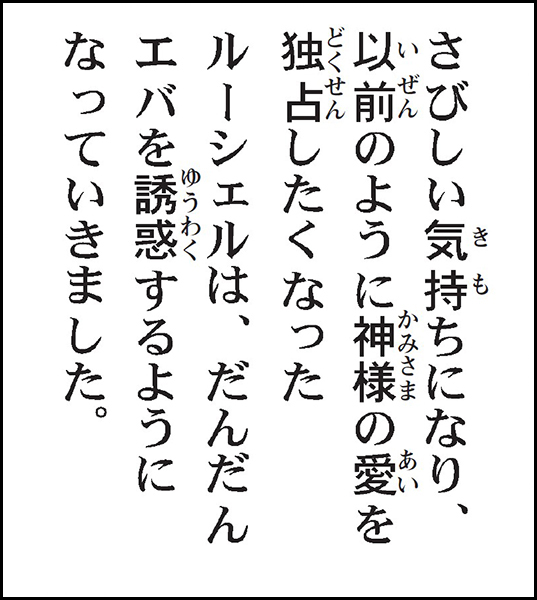 さびしい気持ちになり、
以前のように神様の愛を
独占したくなった
ルーシェルは、だんだん
エバを誘惑するように
なっていきました。